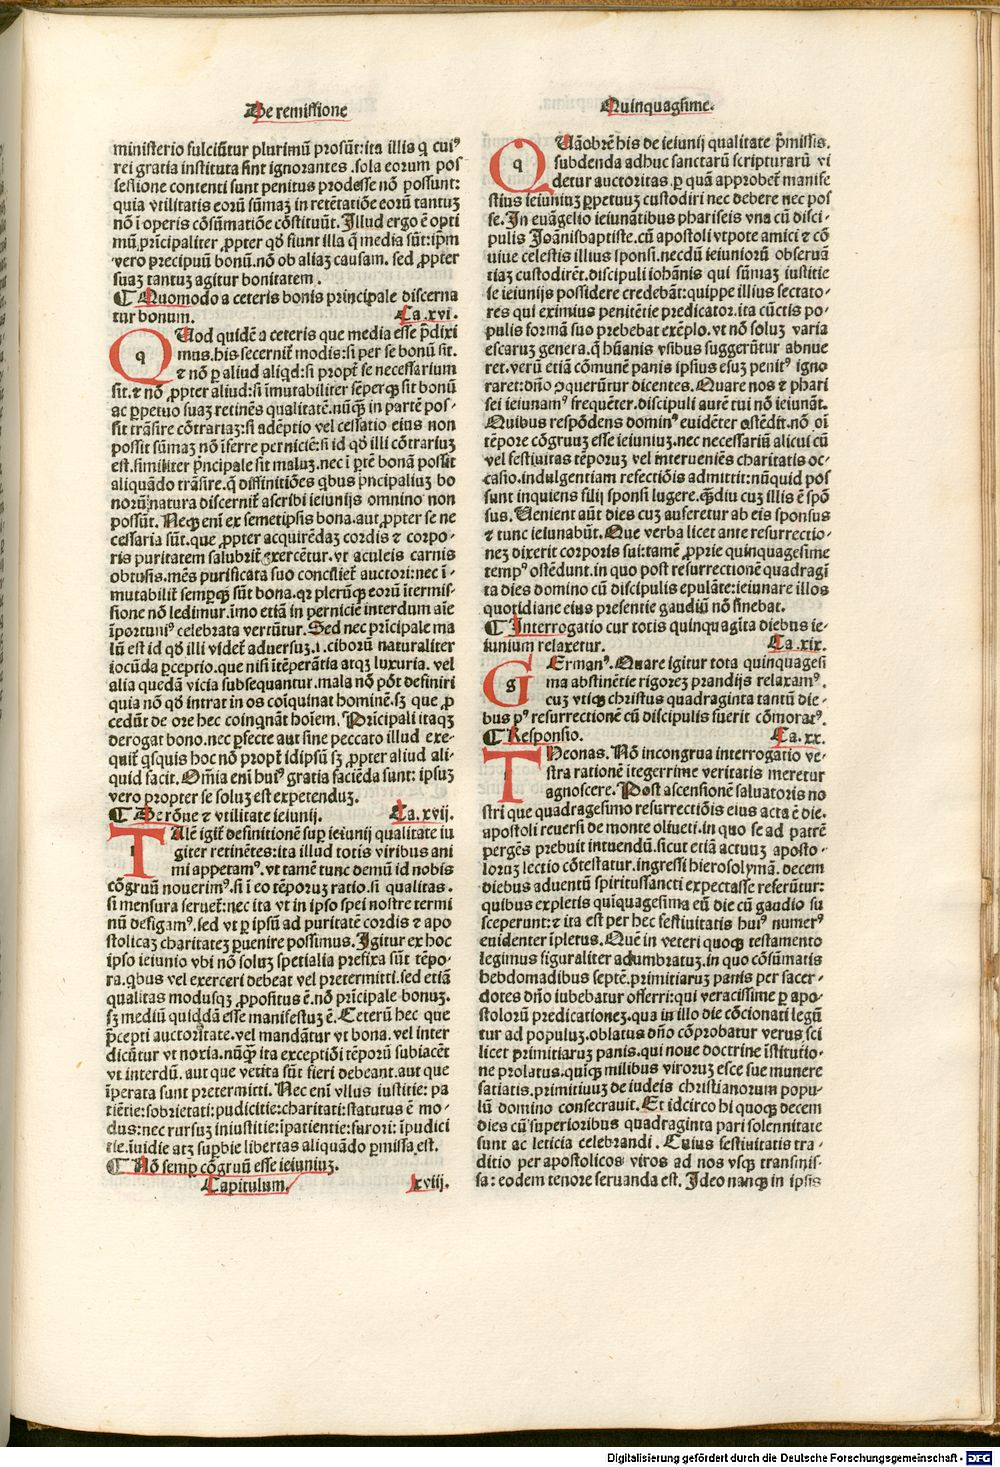 De remissione
Quinquagesime.
ministerio fulciūtur plurimū prosūt: ita illis q̄ cuiꝰ
rei gratia instituta sint ignorantes .sola eorum pos
sessione contenti sunt penitus prodesse nō possunt:
quia vtilitatis eorū sūmaʒ in retētatiōe eorū tantuʒ
nō ī operis cōsūmatiōe cōstituūt. Illud ergo ē opti
mū p̄rincipaliter ꝓpter qđ fiunt illa q̄ media sūt: ip̄m
vero precipuū bonū.nō ob aliaʒ causam. sed ꝓpter
suaʒ tantuʒ agitur bonitatem .
¶ Quomodo a ceteris bonis principale discerna
tur bonum. Ca.xvi.
QUod quidē a ceteris que media esse p̄dixi
mus.his secernit̄ modis: si per se bonū sit.
⁊ nō ꝑ aliud aliqd: si propt̄ se necessarium
sit.⁊ nō ꝓpter aliud: si īmutabiliter sēperqꝫ sit bonū
ac ꝑpetuo suaʒ retinēs qualitatē.nūqꝫ in partē pos-
sit trāsire cōtrariaʒ: si adēptio vel cessatio eius non
possit sūmaʒ nō īferre perniciē: si id qđ illi cōtrarius
est.similiter p̄ncipale sit maluʒ.nec ī ꝑtē bonā possit
aliquādo trāsire.q̄ diffinitiōes qbus p̄ncipaliuʒ bo
norū natura discernit̄ ascribi ieiunijs omnino non
possūt. Neqꝫ enī ex semetipsis bona.aut ꝓpter se ne
cessaria sūt.que ꝓpter acquirēdaʒ cordis ⁊ corpo-
ris puritatem salubrit̄ exercētur.vt aculeis carnis
obtusis.mēs purificata suo conciliet̄ auctori: nec ī-
mutabilit̄ semperqꝫ sūt bona.qꝛ plerūqꝫ eorū itermis-
sione nō ledimur.īmo etiā in pernicie interdum aīe
īportuniꝰ celebrata vertūtur. Sed nec prīcipale ma
lū est id qđ illi videt̄ aduersuʒ.i.ciborū naturaliter
iocūda ꝑceptio.que nisi ītēperātia atqʒ luxuria. vel
alia quedā vicia subsequantur.mala nō pōt definiri
quia nō qđ intrat in os coiquinat hominē.sʒ que ꝓ
cedūt de ore hec coinqnāt hoiem. Prīcipali itaqʒ
derogat bono.nec ꝑfecte aut sine peccato illud exe-
quit̄ qsquis hoc nō propt̄ idipsū sʒ ꝓpter aliud ali-
quid facit. Oīa enī huiꝰ gratia faciēda sunt: ipsuʒ
vero propter se soluʒ est expetenduʒ.
¶ De rōne ⁊ vtilitate ieiunij. Ca.xvij.
TAlē igit̄ definitionē suꝑ ieiunij qualitate iu
giter retinētes: ita illud totis viribus ani
mi appetamꝰ.vt tamē tunc demū id nobis
cōgruū nouerimꝰ.si ī eo tēporuʒ ratio.si qualitas.
si mensura seruet̄: nec ita vt in ipso spei nostre termi
nū defigamꝰ.sed vt ꝑ ipsū ad puritatē cordis ⁊ apo
stolicaʒ charitateʒ ꝑuenire possimus. Igitur ex hoc
ipso ieiunio vbi nō soluʒ spetialia prefixa sūt tēpo-
ra.qbus vel exerceri debeat vel pretermitti.sed etiā
qualitas modusqʒ ꝓpositus ē.nō prīcipale bonuʒ.
sʒ mediū quiddā esse manifestuʒ ē. Ceterū hec que
p̄cepti auctoritate.vel mandātur vt bona.vel inter
dicūtur vt noxia.nūqꝫ ita exceptiōi tēporū subiacēt
vt interdū.aut que vetita sūt fieri debeant.aut que
īperata sunt pretermitti. Nec enī vllus iustitie: pa
tiētie: sobrietati: pudicitie: charitati: statutus ē mo-
dus: nec rursuʒ iniustitie: īpatientie: furori: īpudici
tie.īuidie atʒ suꝑbie libertas aliquādo ꝑmissa est.
¶ Nō semꝑ cōgruū esse ieiuniuʒ.
Capitulum. xviij.
QUāobrē his de ieiunij qualitate p̄missis.
subdenda adhuc sanctarū scripturarū vi
detur auctoritas.ꝑ quā approbet̄ manife
stius ieiuniuʒ ꝑpetuuʒ custodiri nec debere nec pos
se. In euāgelio ieiunātibus phariseis vna cū disci-
pulis Joānisbaptiste.cū apostoli vtpote amici ⁊ cō
uiue celestis illius sponsi.necdū ieiuniorū obseruā
tiaʒ custodirēt.discipuli iohānis qui sūmaʒ iustitie
se ieiunijs possidere credebāt: quippe illius sectato-
res qui eximius penitētie predicator.ita cūctis po-
pulis formā suo prebebat exēplo.vt nō soluʒ varia
escaruʒ genera.q̄ hūanis vsibus suggerūtur abnue
ret.verū etiā cōmunē panis ipsius esuʒ penitꝰ igno
raret: dño ꝯquerūtur dicentes. Quare nos ⁊ phari
sei ieiunamꝰ frequēter.discipuli autē tui nō ieiunāt.
Quibus respōdens dominꝰ euidēter ostēdit.nō oī
tēpore cōgruuʒ esse ieiuniuʒ.nec necessariū alicui cū
vel festiuitas tēporuʒ vel interueniēs charitatis oc-
casio.indulgentiam refectiōis admittit: nūquid pos
sunt inquiens filij sponsi lugere.qꝫdiu cuʒ illis ē spō
sus. Uenient aūt dies cuʒ auferetur ab eis sponsus
⁊ tunc ieiunabūt. Que verba licet ante resurrectio-
neʒ dixerit corporis sui: tamē ꝓprie quinquagesime
tempꝰ ostēdunt.in quo post resurrectionē quadragī
ta dies domino cū discipulis epulāte: ieiunare illos
quotidiane eius presentie gaudiū nō sinebat.
¶ Interrogatio cur totis quinquagīta diebus ie-
iunium relaxetur. Ca.xix.
GErmanꝰ. Quare igitur tota quinquagesi
ma abstinētie rigoreʒ prandijs relaxamꝰ.
cuʒ vtiqꝫ christus quadraginta tantū die-
bus pꝰ resurrectionē cū discipulis fuerit cōmoratꝰ.
¶ Responsio. Ca.xx.
THeonas. Nō incongrua interrogatio ve-
stra rationē itegerrime veritatis meretur
agnoscere. Post ascensionē saluatoris no
stri que quadragesimo resurrectiōis eius acta ē die.
apostoli reuersi de monte oliueti.in quo se ad patrē
ꝑgēs prebuit intuendū.sicut etiā actuuʒ aposto-
loruʒ lectio cōtestatur.ingressi hierosolymā. decem
diebus aduentū spiritussancti expectasse referūtur:
quibus expletis quīquagesima eū die cū gaudio su
sceperunt: ⁊ ita est per hec festiuitatis huiꝰ numerꝰ
euidenter īpletus. Quē in veteri quoqꝫ testamento
legimus figuraliter adumbratuʒ.in quo cōsūmatis
hebdomadibus septē.primitiaruʒ panis per sacer-
dotes dño iubebatur offerri: qui veracissime ꝑ apo-
stolorū predicationeʒ.qua in illo die cōcionati legū
tur ad populuʒ.oblatus dño cōprobatur verus sci
licet primitiaruʒ panis.qui noue doctrine īstitutio-
ne prolatus.quīqꝫ milibus viroruʒ esce sue munere
satiatis.primitiuuʒ de iudeis christianorum popu-
lū domino consecrauit. Et idcirco hi quoqꝫ decem
dies cū superioribus quadraginta pari solennitate
sunt ac leticia celebrandi . Cuius festiuitatis tra-
ditio per apostolicos viros ad nos vsqꝫ transmis-
sa: eodem tenore seruanda est. Ideo nanqꝫ in ipsis
Digitalisierung gefördert durch die Deutsche Forschungsgemeinschaft - DFG